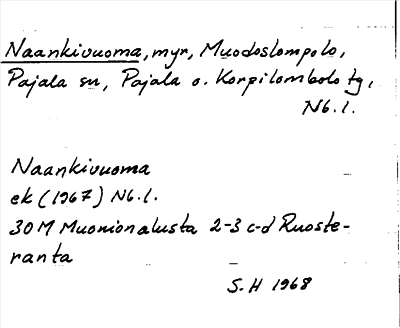 Naankivuoma, myr, Muodoslompolo,
Pajala sn, Pajala o. Korpilombolo tg,
Nb. l.
Naankivuoma
ek (1967) Nb. l.
30 M Muonionalusta 2-3 c-d Ruoste-
ranta
S. H 1968